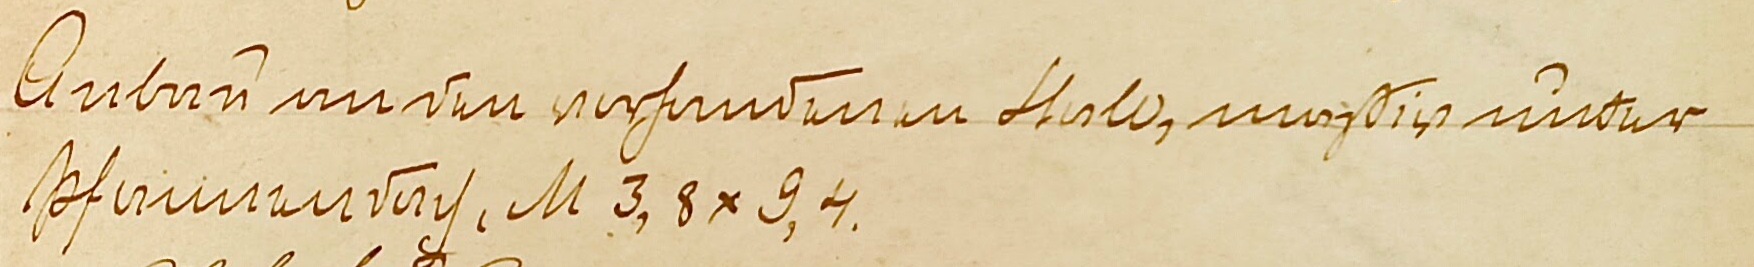 Anbau an den vorhandenen Stall, massiv unter
Pfannendach, M 3,8 x 9,4.